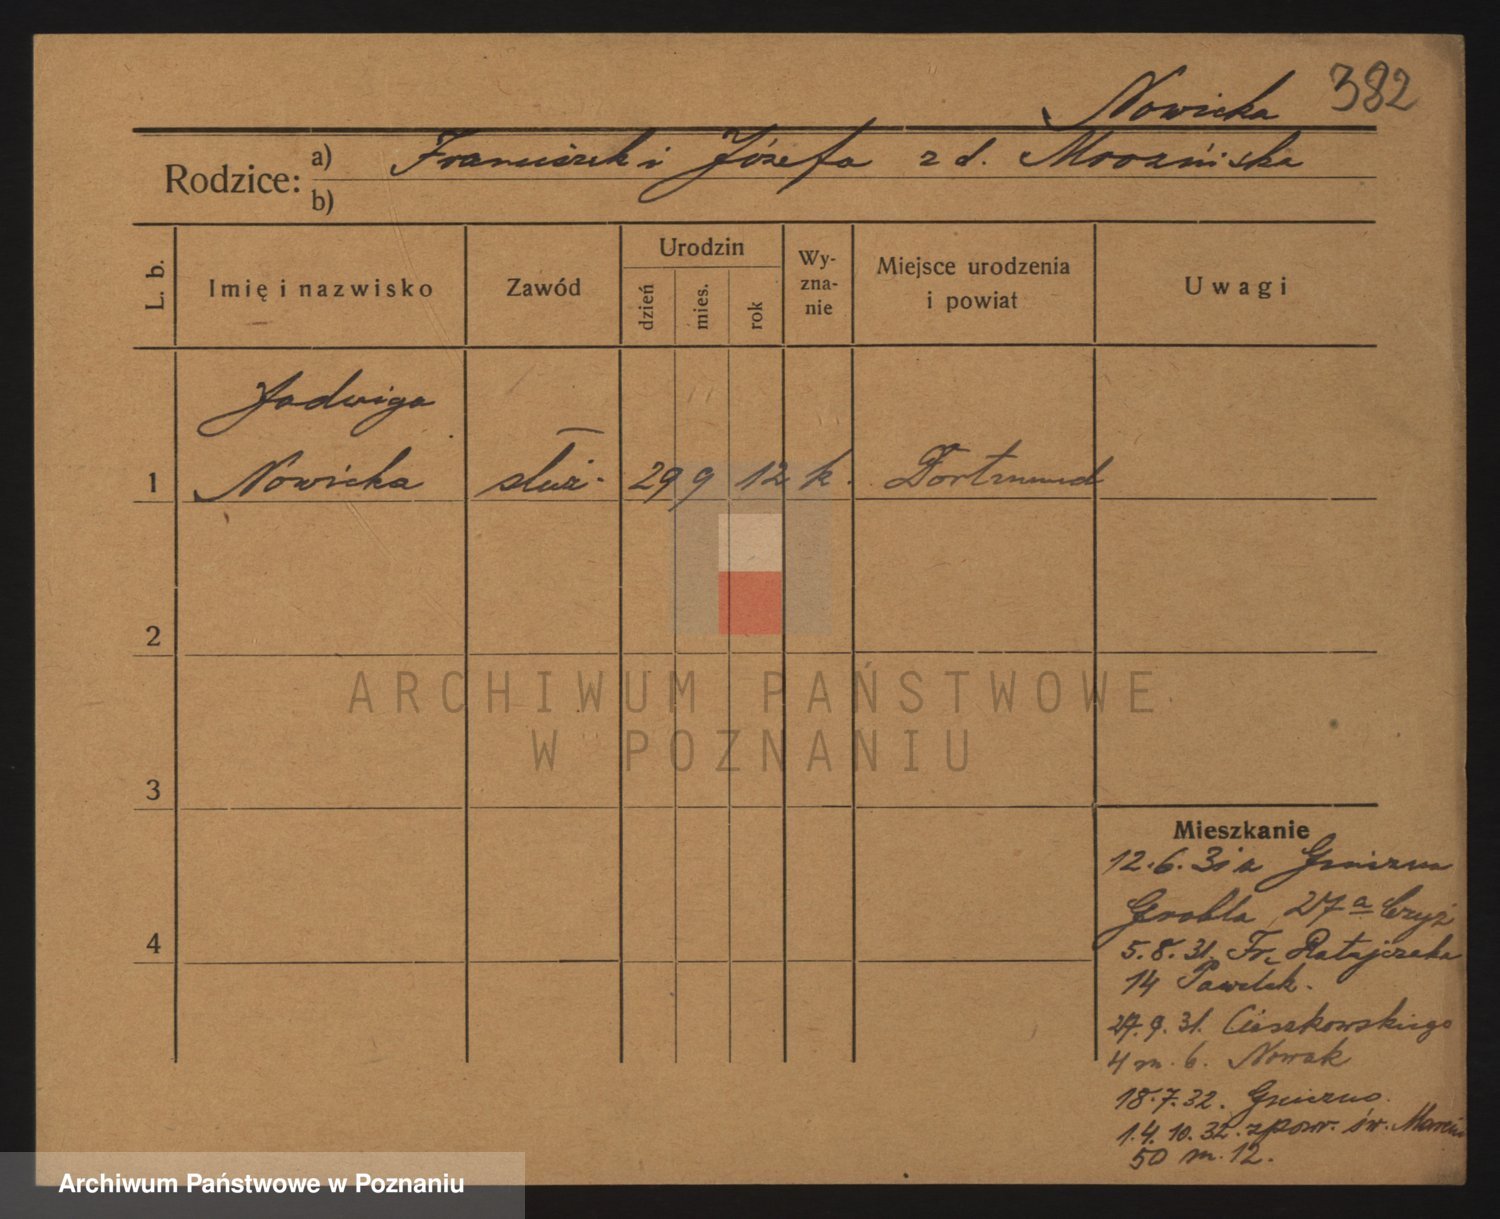 382
Nowicka
Rodzice: a) Franciszek i Józefa z d. Mrozińska
b)
L. b.
Imię i nazwisko
Zawód
Urodzin
dzień
mies.
rok
Wy-
zna-
nie
Miejsce urodzenia
i powiat
Uwagi
Jadwiga
1 Nowicka służ. 29 9 12 k. Dortmund
2
3
4
ARCHIWUM PAŃSTWOWE
W POZNANIU
Mieszkanie
12.6.31 a Gniezno
Grobla 27a
5.8.31. Fr. Ratajczaka
14 Pawlak.
27.9.31. Cieszkowskiego
4 m. 6. Nowak
18.7.32. Gniezno.
14.10.32. z pow. św. Marcin
50 m. 12.
Archiwum Państwowe w Poznaniu